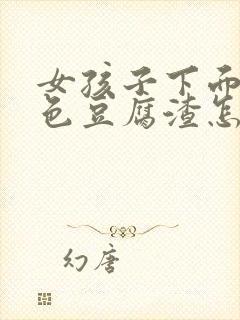 女孩子下而
色豆腐渣怎
幻唐